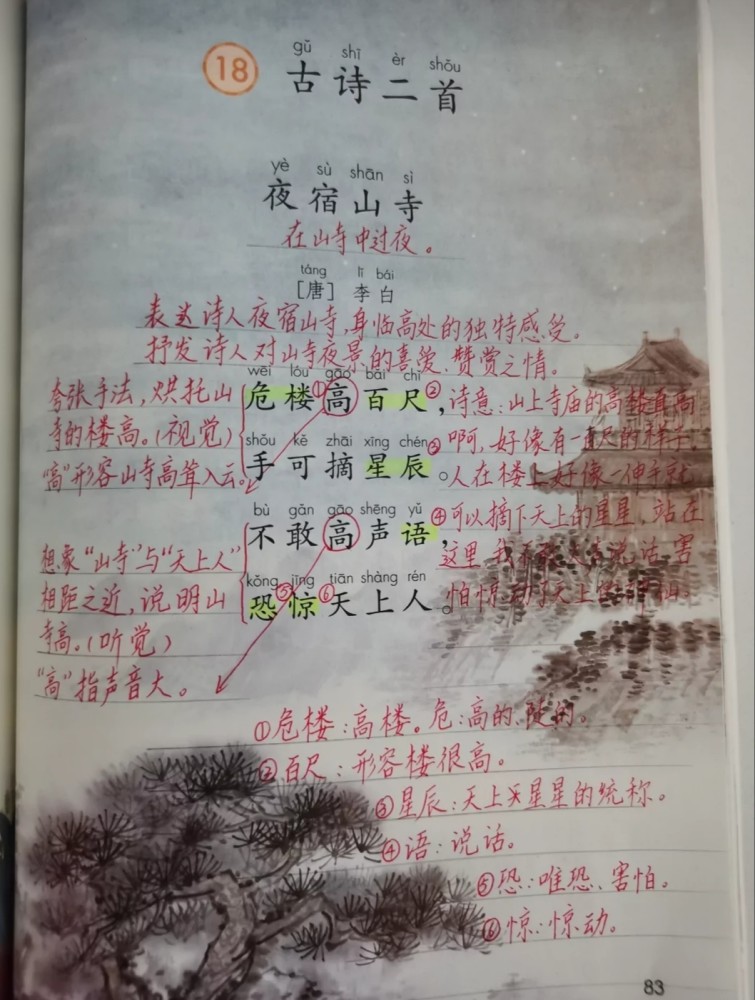 gǔ shī èr shǒu
18 古诗二首
yè sù shān sì
夜宿山寺
在山寺中过夜。
táng lǐ bái
[唐] 李白
表达诗人夜宿山寺,身临高处的独特感受。
抒发诗人对山寺夜景的喜爱、赞赏之情。
wēi lóu gāo bǎi chǐ
危楼①高百尺②,
shǒu kě zhāi xīng chén
手可摘星辰③。
bù gǎn gāo shēng yǔ
不敢高声语④,
kǒng jīng tiān shàng rén
恐⑤惊⑥天上人。
夸张手法,烘托山
寺的楼高。(视觉)
"高"形容山寺高耸入云。
想象"山寺"与"天上人"
相距之近,说明山
寺高。(听觉)
"高"指声音大。
诗意:山上寺庙的高楼真高
啊,好像有一百尺的样子,
人在楼上好像一伸手就
可以摘下天上的星星,站在
这里,我不敢大声说话,害
怕惊动了天上的神仙。
①危楼:高楼。危:高的、陡的。
②百尺:形容楼很高。
③星辰:天上星星的统称。
④语:说话。
⑤恐:唯恐、害怕。
⑥惊:惊动。
83